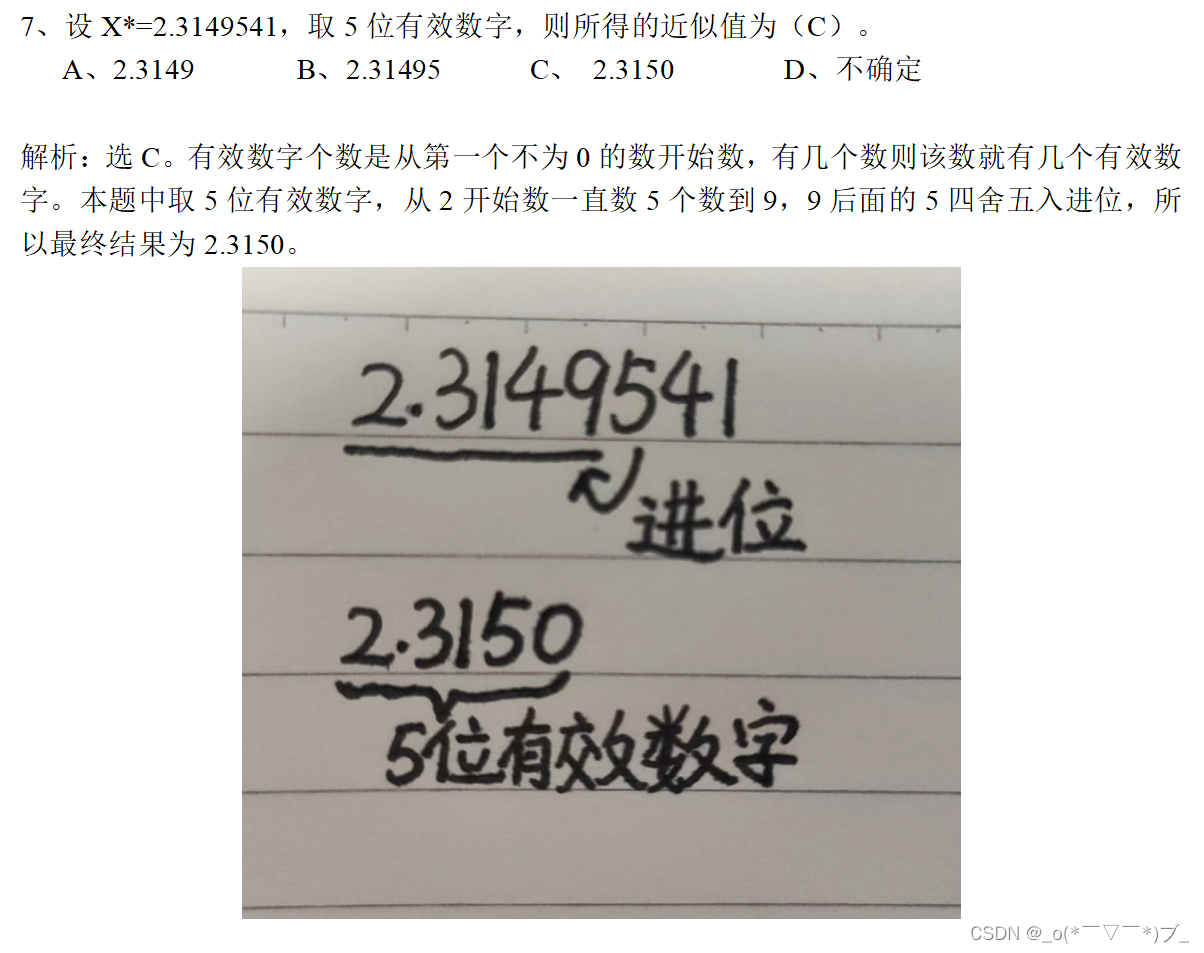 7、设 X*=2.3149541，取 5 位有效数字，则所得的近似值为（C）。
A、2.3149 B、2.31495 C、 2.3150 D、不确定
解析：选 C。有效数字个数是从第一个不为 0 的数开始数，有几个数则该数就有几个有效数
字。本题中取 5 位有效数字，从 2 开始数一直数 5 个数到 9，9 后面的 5 四舍五入进位，所
以最终结果为 2.3150。
2.3149541
进位
2.3150
5位有效数字
CSDN @_o(*￣▽￣*)ブ_